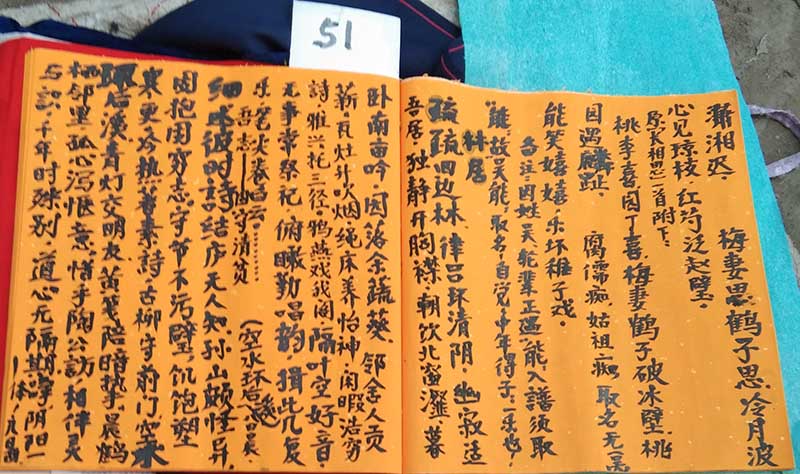 51
梅妻思鹤子思冷月波
潇湘迟。
心见琼枝,红芍泛起壁。
原实相思二首附下:
桃李喜园丁喜,梅妻鹤子破冰壁,桃
因遇麟趾。 腐儒痴姑祖一痴 取名无
能笑嬉嬉,乐坏稚子戏。
各注因姓吴,轮辈正遇能,入谱须取
能,故吴能,取名,自说,中年得子,一乐也,
林居
疏疏四边林,律吕环清阴。幽寂造
吾居,独静开胸襟,朝饮北窗灌,暮
卧南亩吟。园落余蔬葵,邻舍人贡
薪,瓦灶斗吹烟,绳床养怡神,闲暇浩穷
詩,雅兴花三径。鸦燕戏我阁,隔叶空好音。
无事常祭祀,俯瞰勤唱韵,揖此几复
乐,老火卷白云。
吾志——幽守清贫
细咏彼时詩,结庐无人知,孙山颠怪异,
固抱困穷志,守节不污壁,饥饱塑
寒更,吟执著素詩,古柳守前门,空水
环后溪,青灯交明友,黄笺陪暗挚,晨鹤
栖邻里,孤心泻惬意,惜手陶公訪,相伴灵
与讼,千年时殊别,道心无隔期,